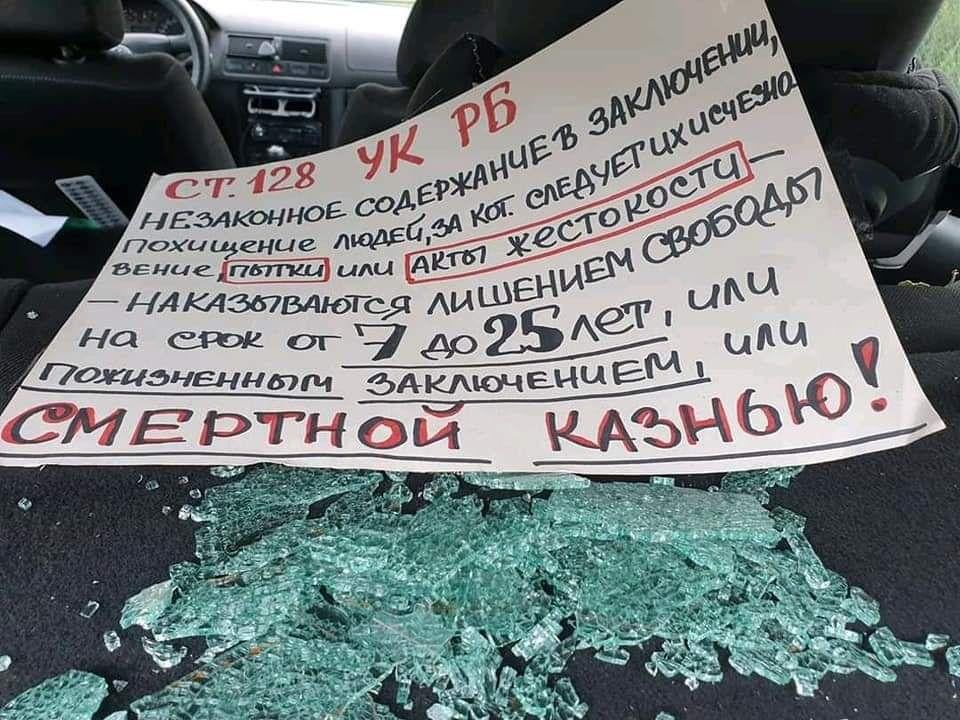 СТ. 128 УК РБ
НЕЗАКОННОЕ СОДЕРЖАНИЕ В ЗАКЛЮЧЕНИИ,
ПОХИЩЕНИЕ ЛЮДЕЙ, ЗА КОТ. СЛЕДУЕТ ИХ ИСЧЕЗНО-
ВЕНИЕ, ПЫТКИ ИЛИ АКТЫ ЖЕСТОКОСТИ —
— НАКАЗЫВАЮТСЯ ЛИШЕНИЕМ СВОБОДЫ
НА СРОК ОТ 7 ДО 25 ЛЕТ, ИЛИ
ПОЖИЗНЕННЫМ ЗАКЛЮЧЕНИЕМ, ИЛИ
СМЕРТНОЙ КАЗНЬЮ!